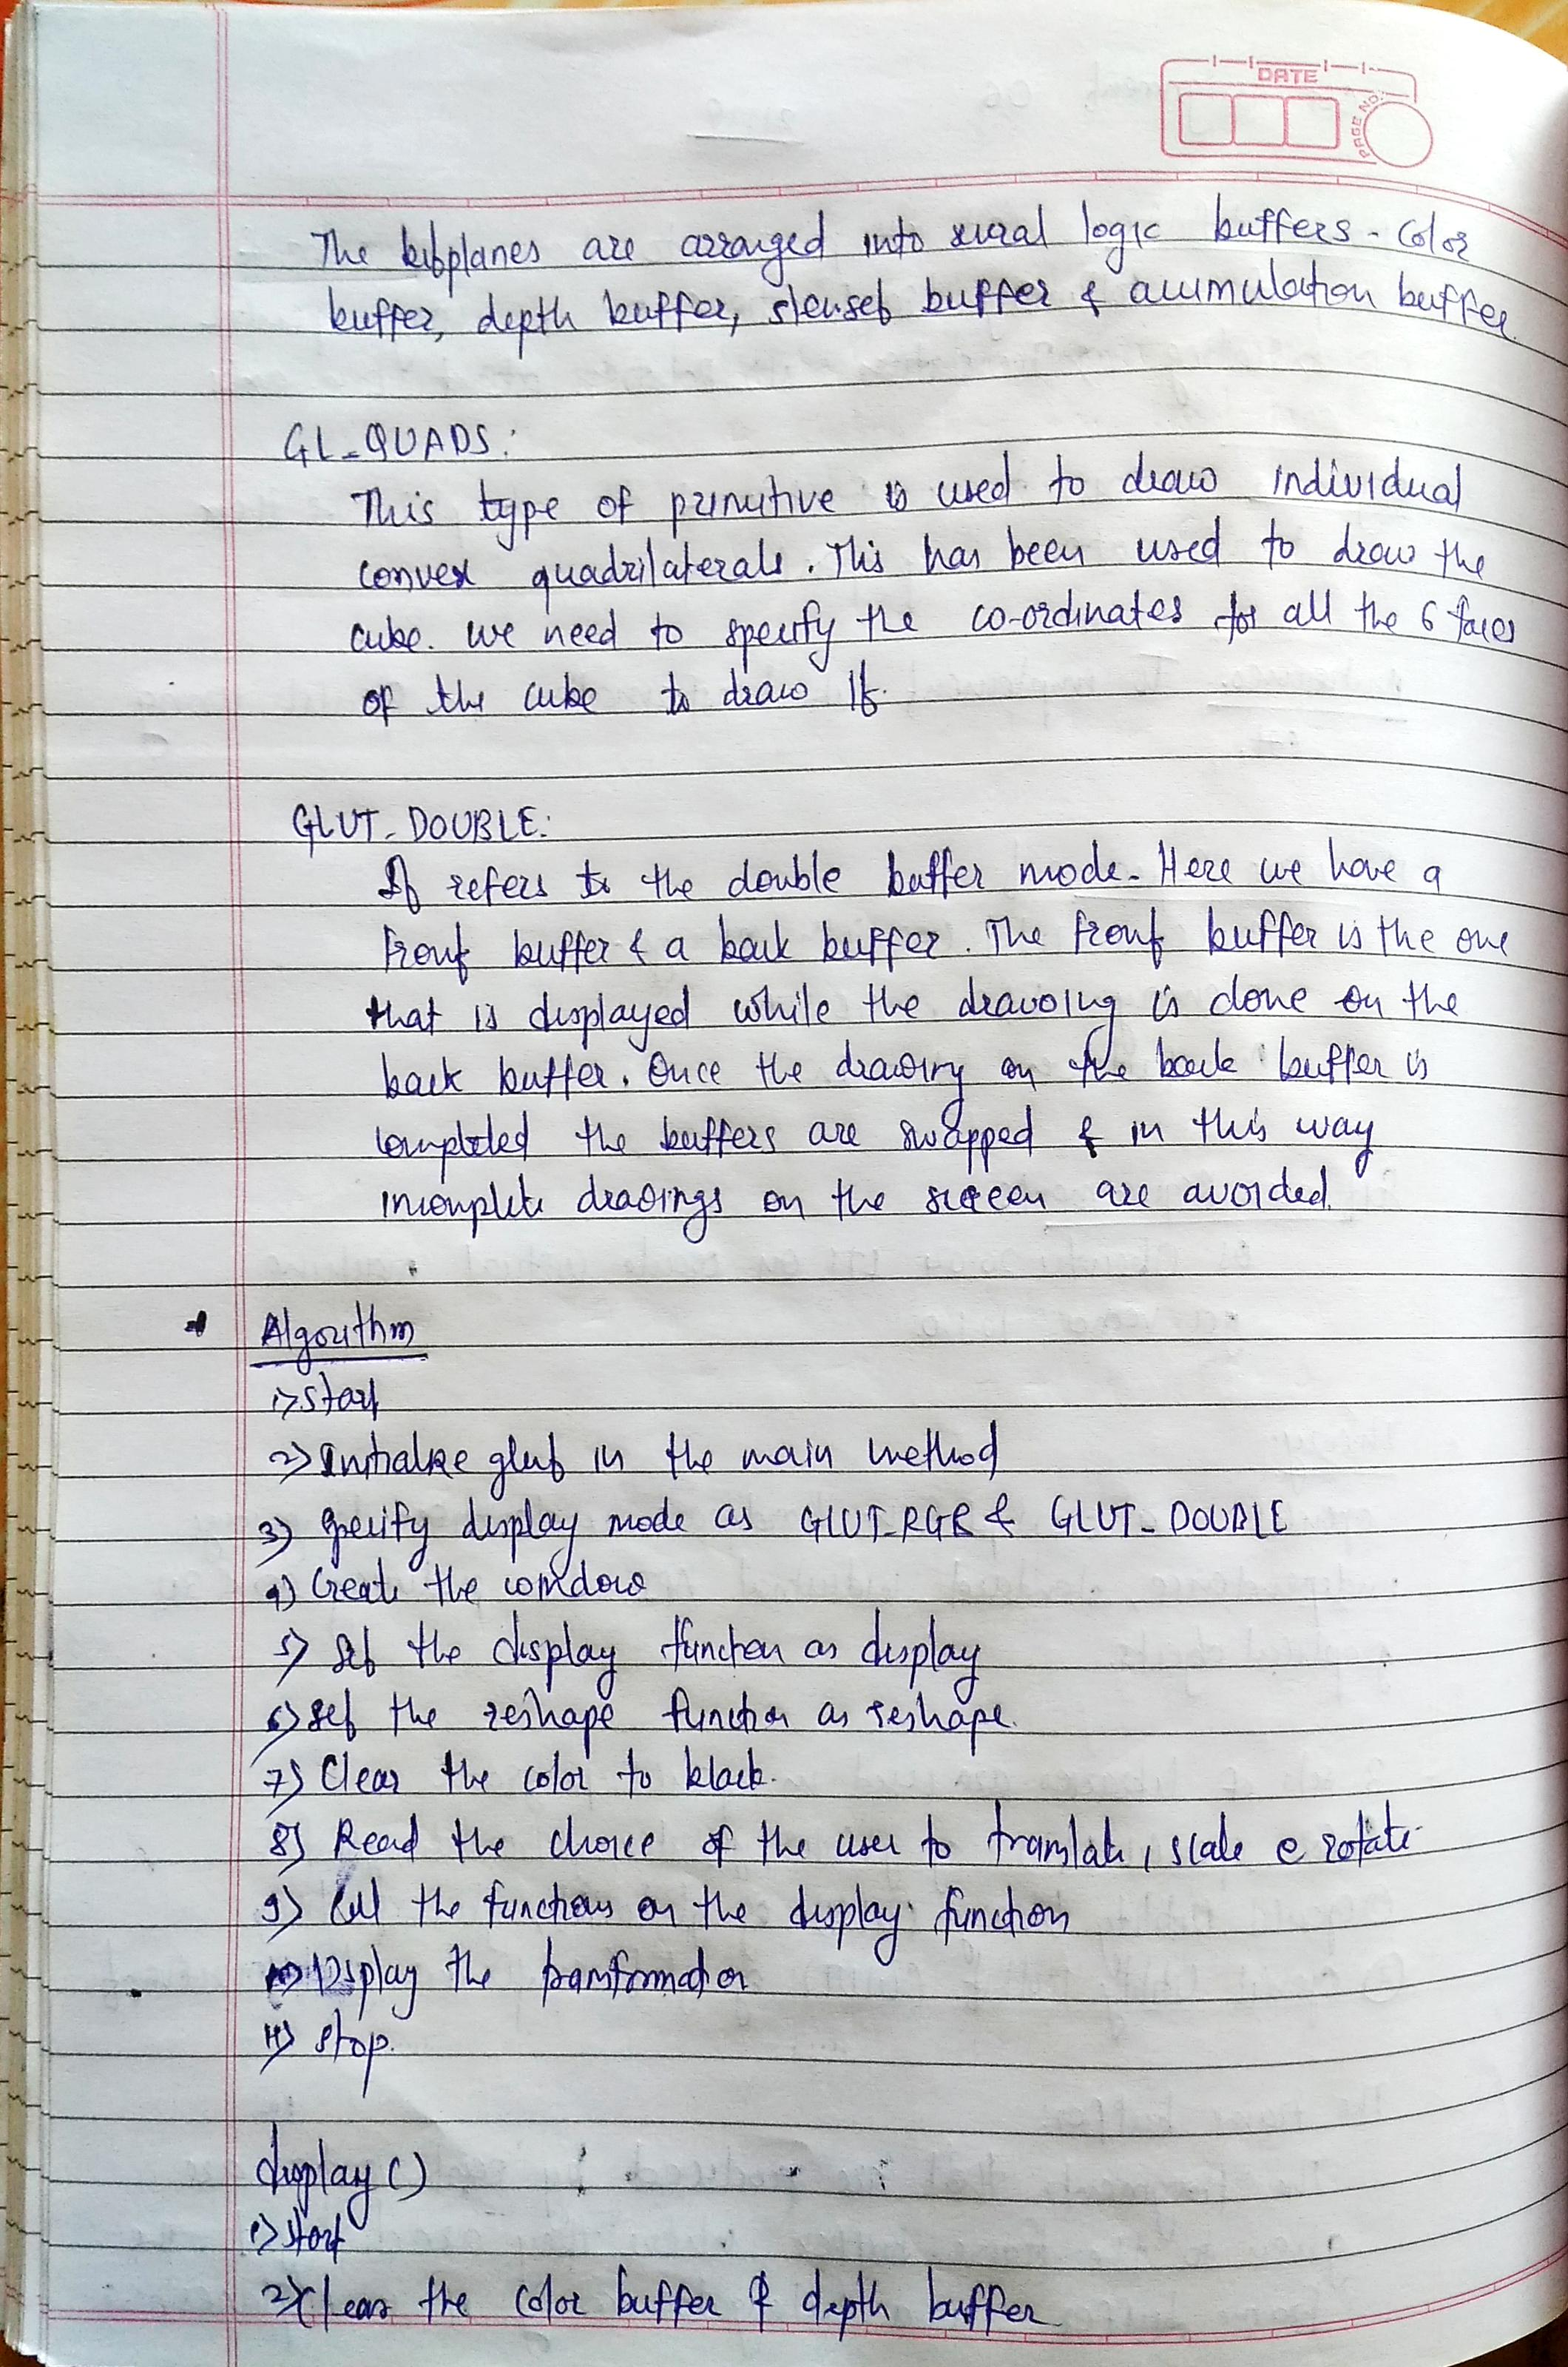 DATE
PAGE NO.
The bitplanes are arranged into several logic buffers - color
buffer, depth buffer, buffer & accumulation buffer.
GL_QUADS:
This type of primitive is used to draw individual
convex quadrilaterals. This has been used to draw the
cube. we need to specify the co-ordinates for all the 6 faces
of the cube to draw it.
GLUT_DOUBLE:
It refers to the double buffer mode. Here we have a
front buffer & a back buffer. The front buffer is the one
that is displayed while the drawing is done on the
back buffer. Once the drawing on the back buffer is
completed the buffers are swapped & in this way
incomplete drawings on the screen are avoided.
Algorithm
1) start
2) Initialize glut in the main method
3) specify display mode as GLUT_RGB & GLUT_DOUBLE
4) Create the window
5) set the display function as display
6) set the reshape function as reshape.
7) Clear the color to black.
8) Read the choice of the user to translate, scale & rotate
9) Call the functions on the display function
10) Display the transformation
11) stop.
display ()
1) start
2) Clear the color buffer & depth buffer